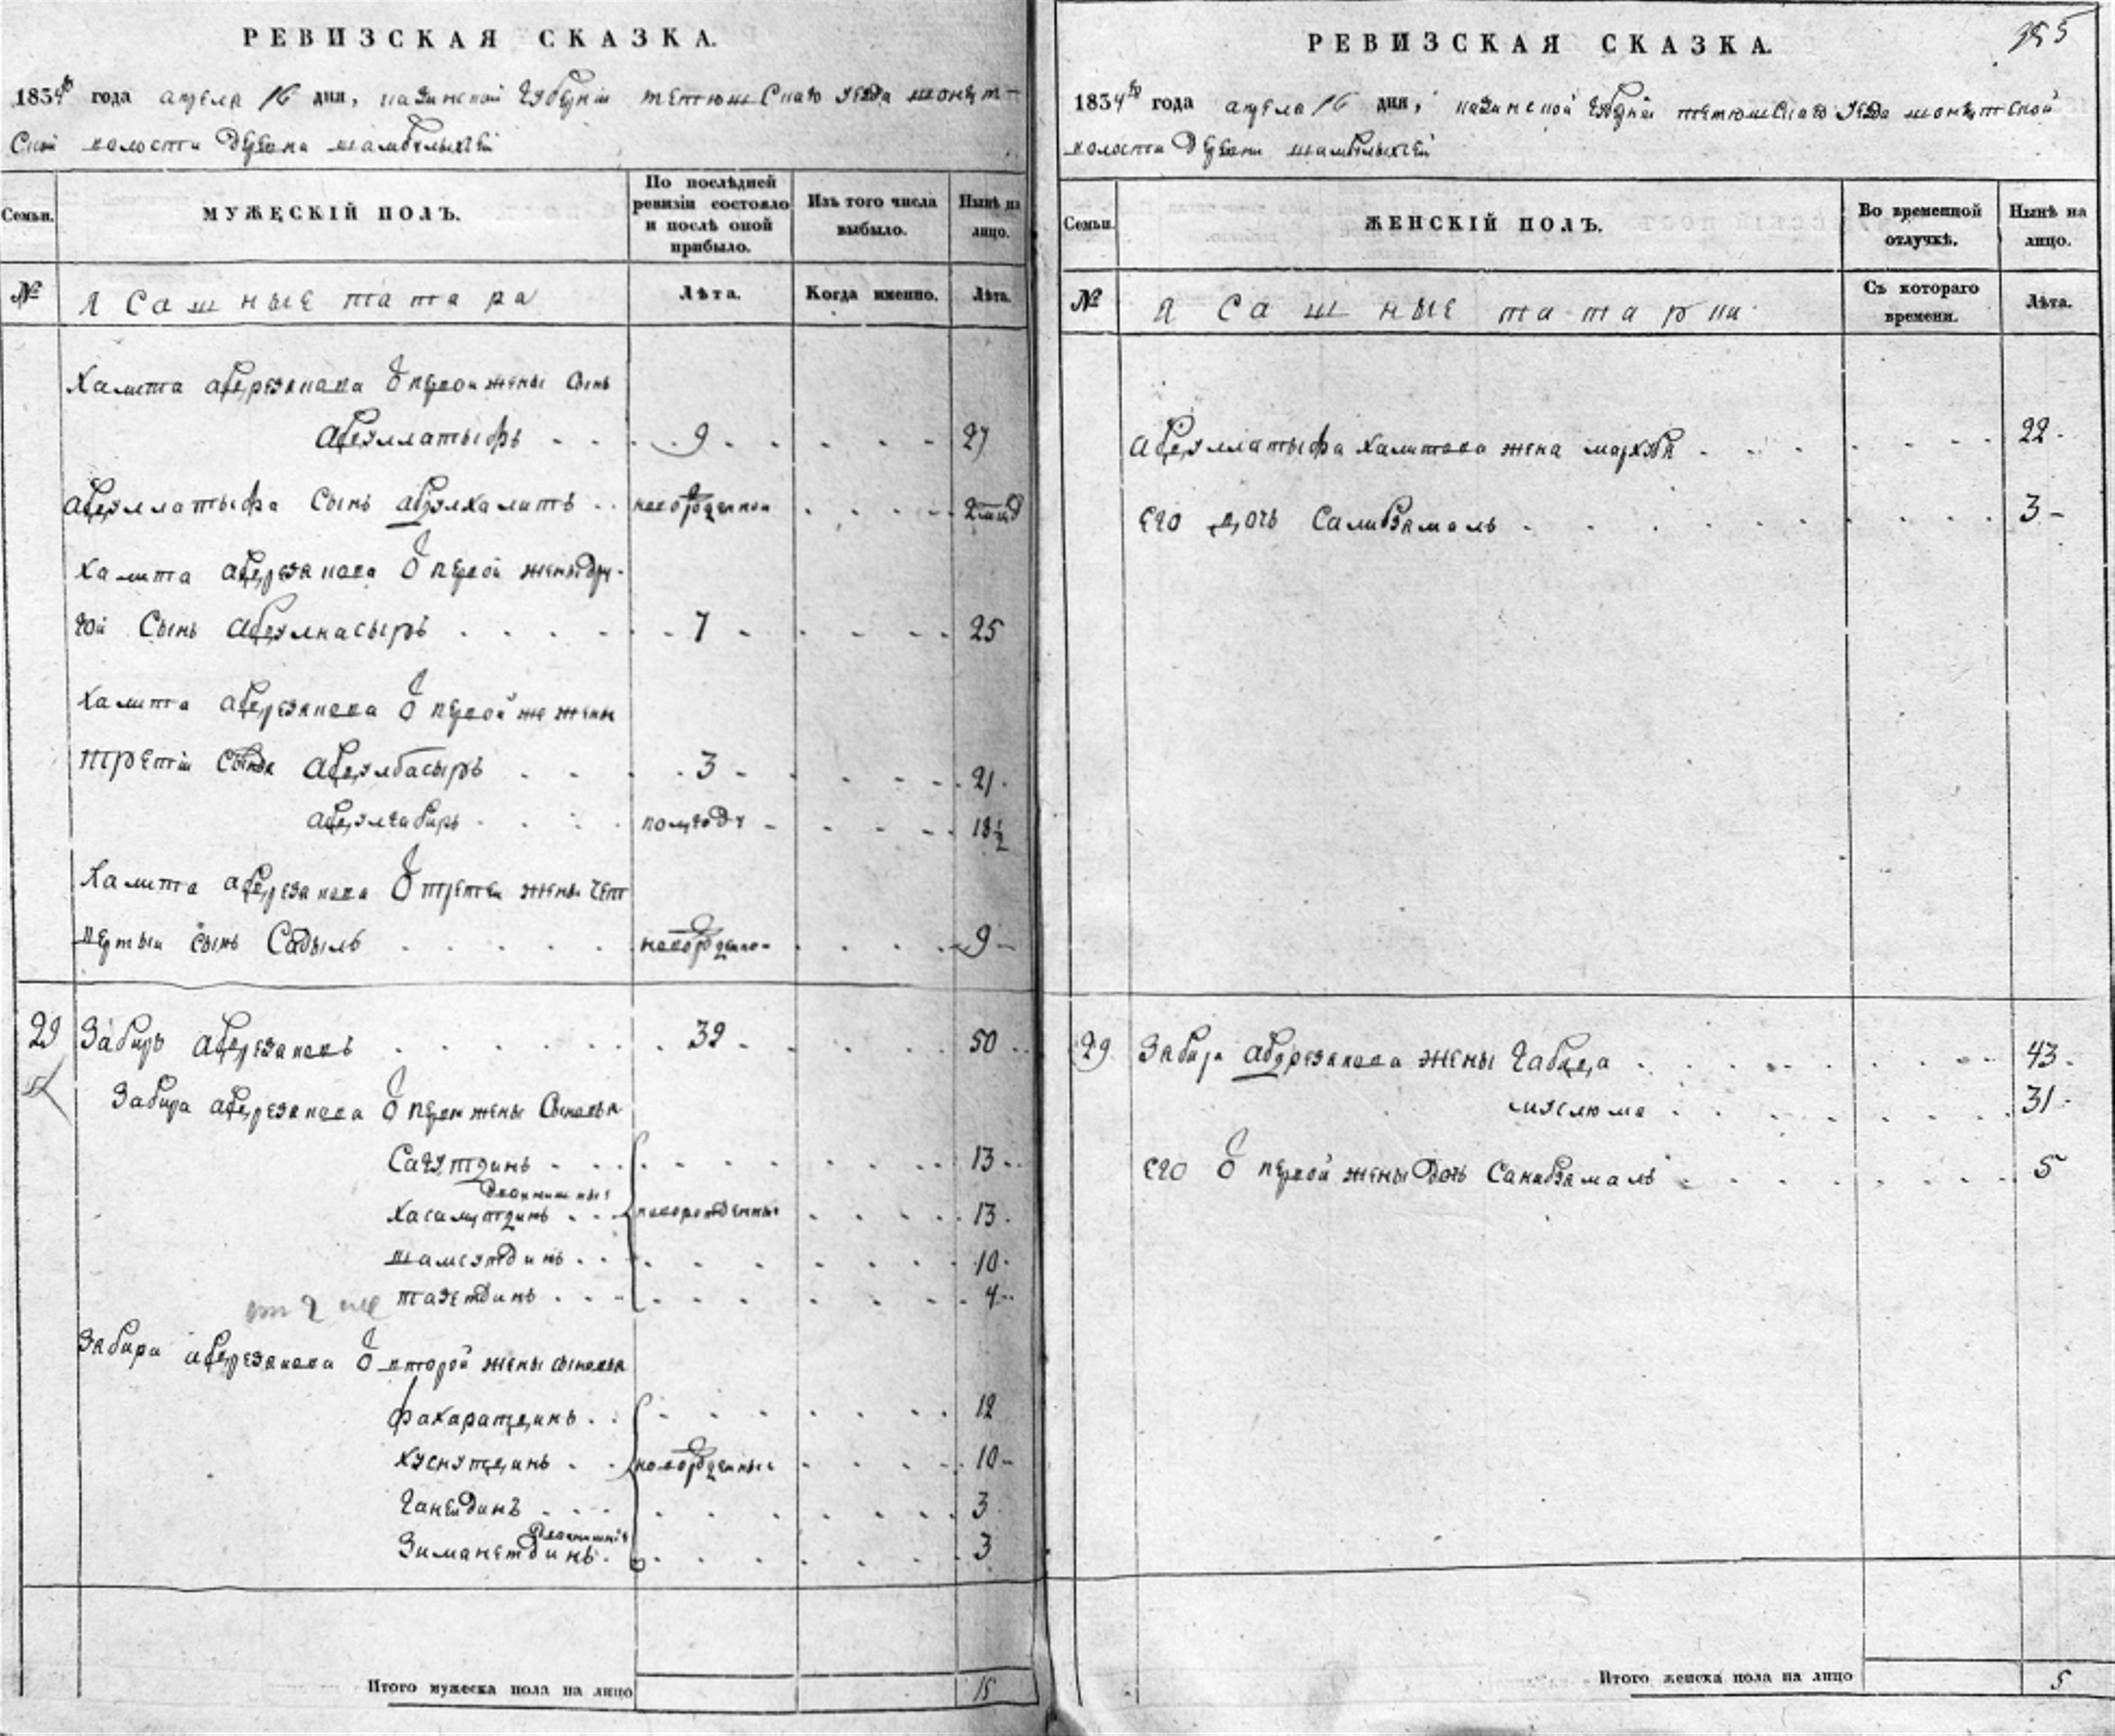 РЕВИЗСКАЯ СКАЗКА.
1834го года апреля 16 дня, казанской губернии тетюшскаго уезда монет-
ской волости деревни шамбулыхчей
Семьи.
МУЖЕСКІЙ ПОЛЪ.
По послѣдней ревизіи состояло и послѣ оной прибыло.
Изъ того числа выбыло.
Нынѣ на лицо.
№
ясашные татара
Лѣта.
Когда именно.
Лѣта.
Халита абдрезякова от первой жены сынъ
абдуллатыфъ 9 27
абдуллатыфа сынъ абдулхалитъ новорожденной
Халита абдрезякова от первой жены дру-
гой сынъ абдулнасыръ 7 25
Халита абдрезякова от первой же жены
третій сынъ абдулбасыръ 3 21
абдулгабиръ полугоду 18½
Халита абдрезякова от третей жены чет
вертый сынъ Садыкъ новорожденно 9
29 Забиръ абдрезяковъ 32 50
Забира абдрезякова от первой жены сыновья
Сагутдинъ 13
двойнишные
Хасамутдинъ новорожденные 13
шамсутдинъ 10
тазетдинъ 4
Забира абдрезякова от второй жены сыновья
фахаратдинъ 12
хуснутдинъ новорожденные 10
Ганейдинъ 3
двойнишніе
Зиманетдинъ 3
Итого мужеска пола на лицо 15
355
РЕВИЗСКАЯ СКАЗКА.
1834го года апреля 16 дня, казанской губерніи тетюшскаго уезда монетской
волости деревни шамбулыхчей
Семьи.
ЖЕНСКІЙ ПОЛЪ.
Во временной отлучкѣ.
Нынѣ на лицо.
№
ясашные татарки
Съ котораго времени.
Лѣта.
абдуллатыфа халитова жена мархуба 22
его дочь Салибзямаль 3
29 Забира абдрезякова жены Габида 43
муслюма 31
его от первой жены дочь Санибзямаль 5
Итого женска пола на лицо 5